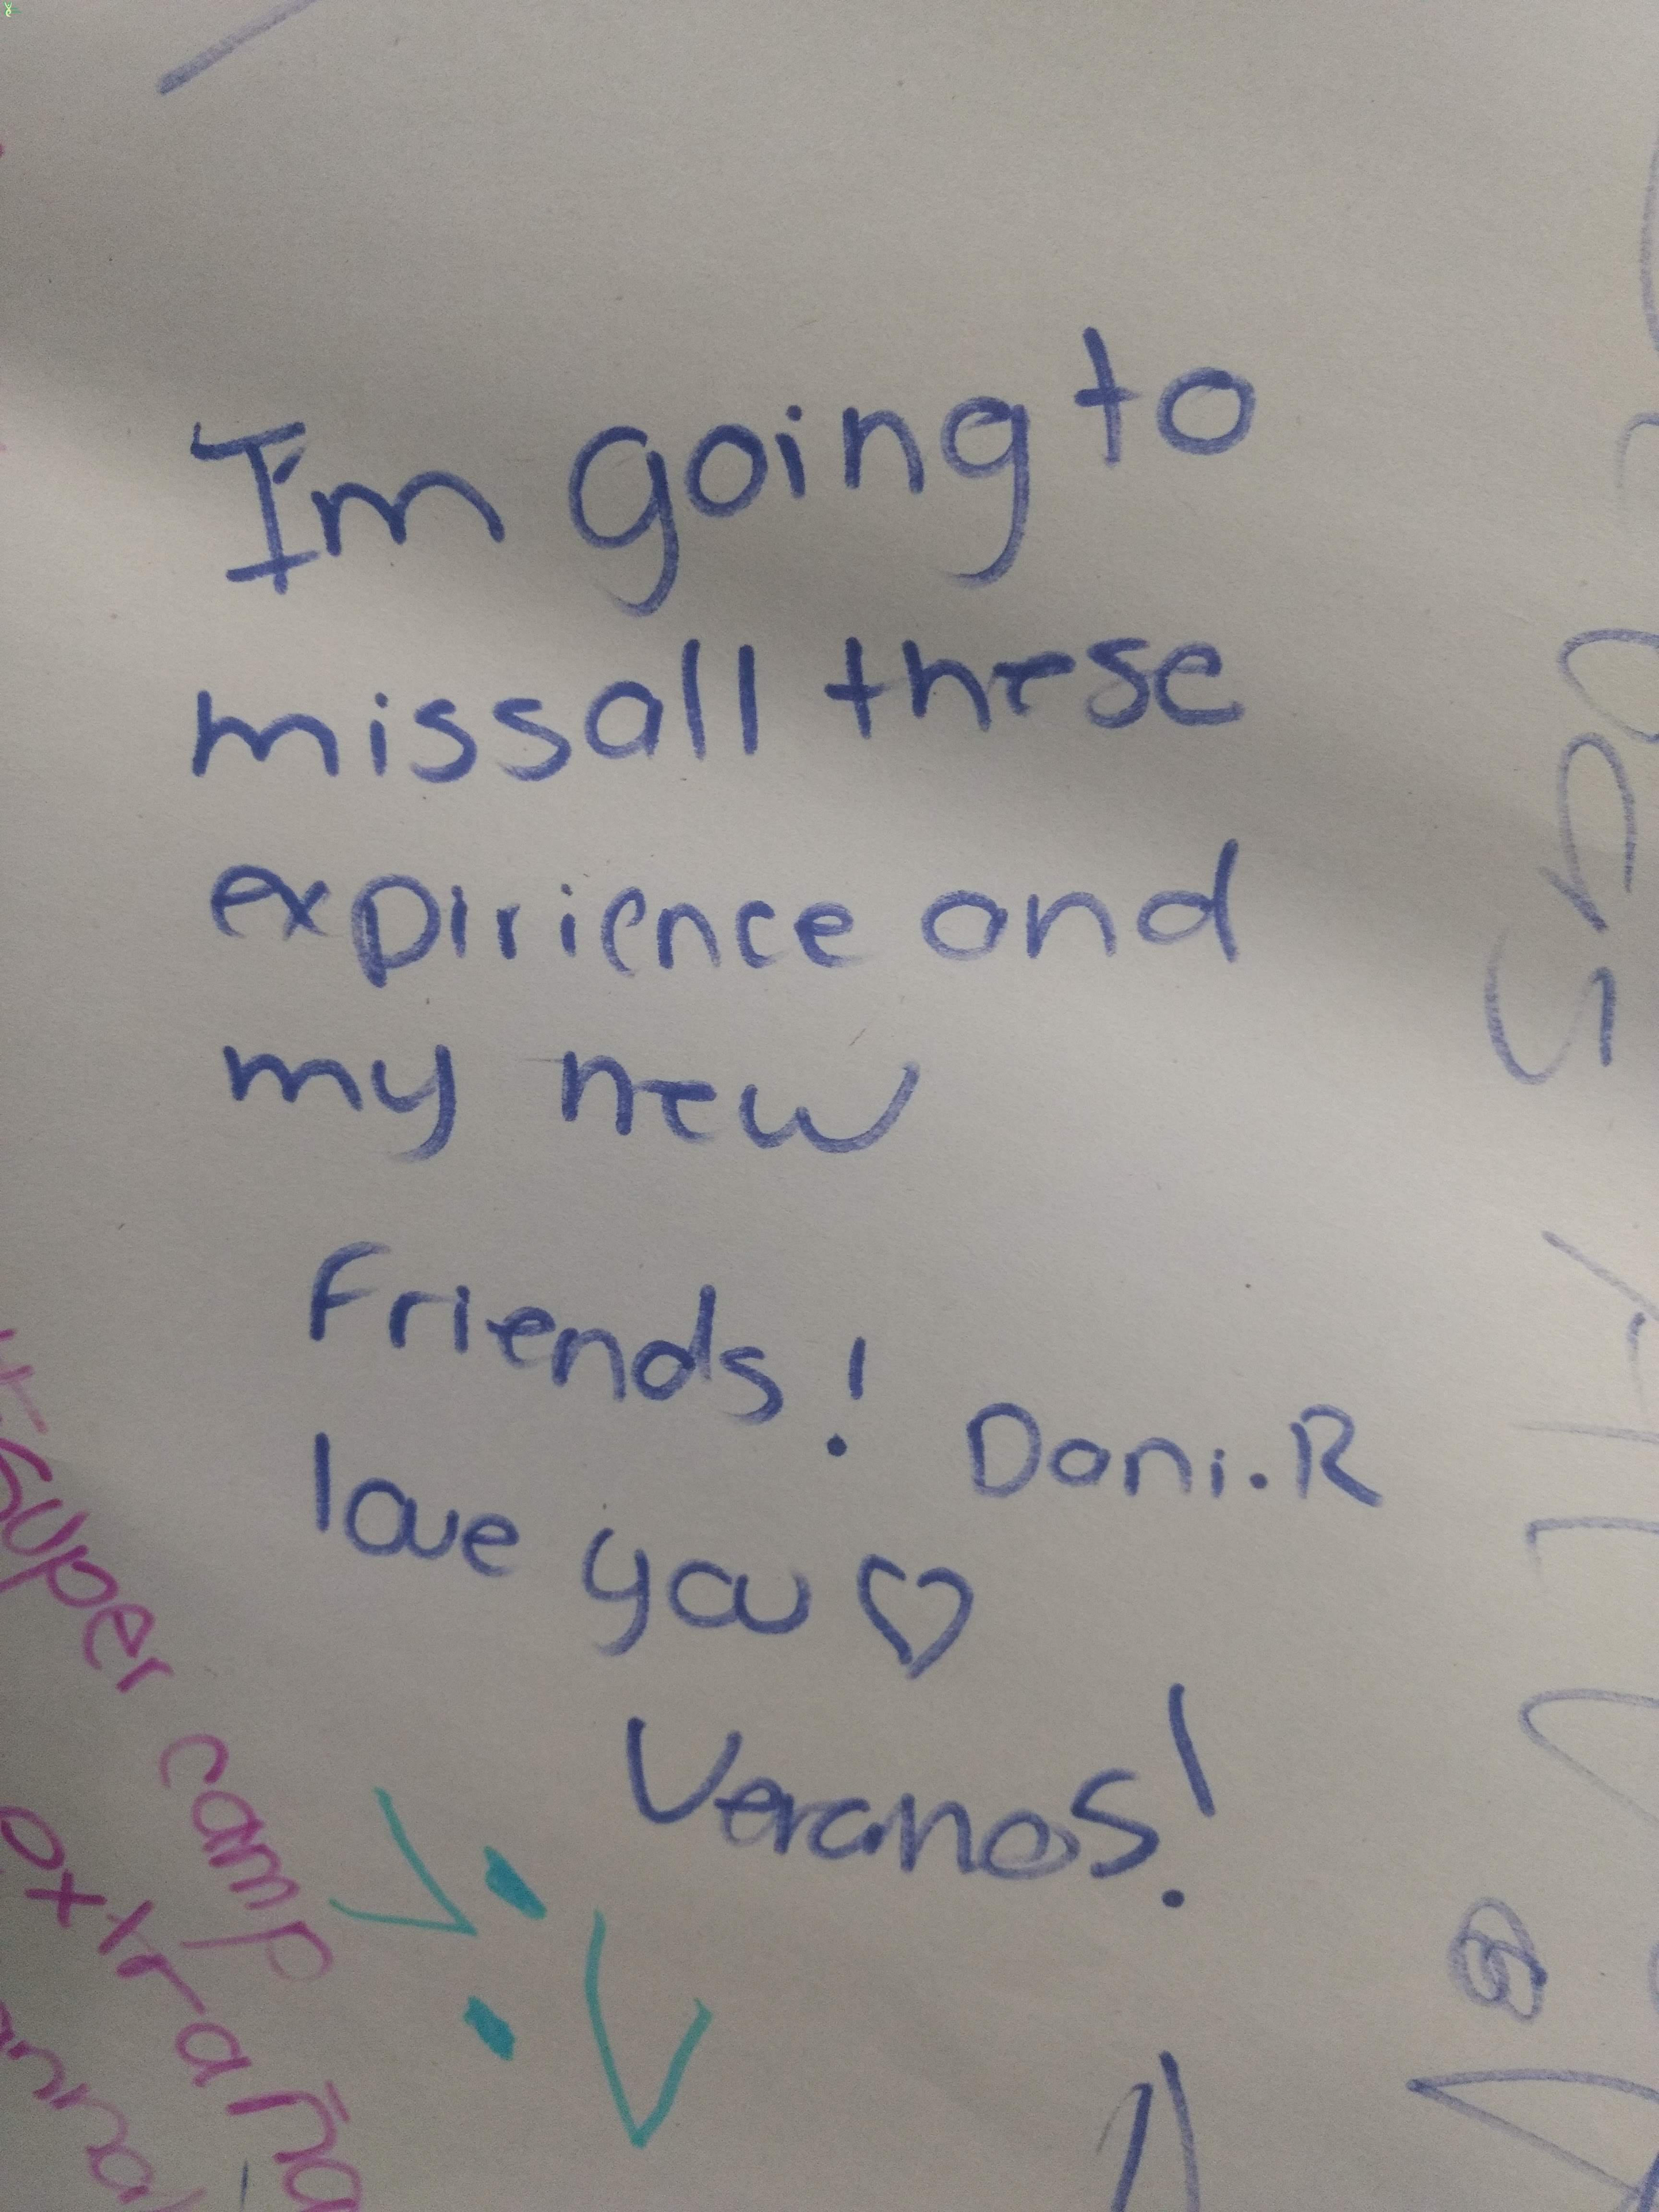 I'm going to
miss all these
expirience and
my new
Friends!
Dani.R
love you ♡
Veranos!
super camp
extraña